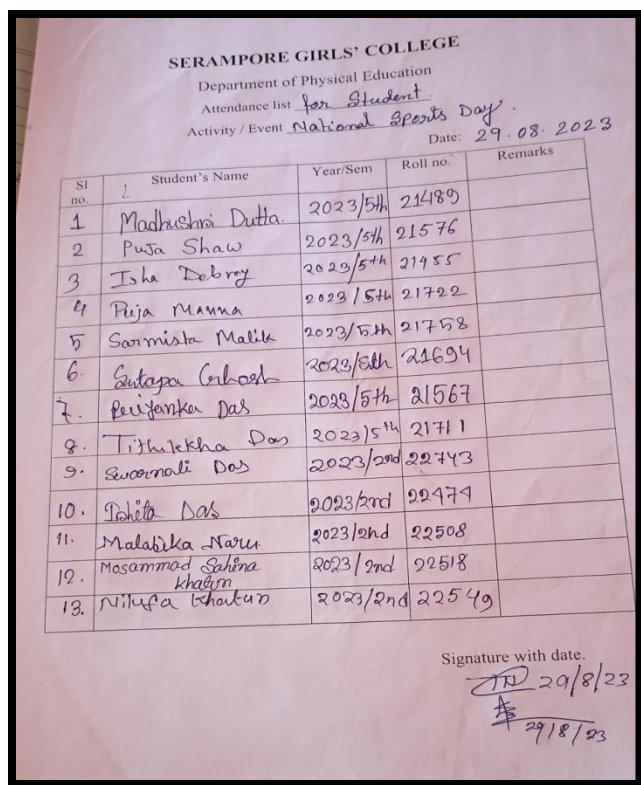 SERAMPORE GIRLS' COLLEGE
Department of Physical Education
Attendance list for Student
Activity / Event National Sports Day.
Date: 29.08.2023
Sl no. Student's Name Year/Sem Roll no. Remarks
1 Madhushri Dutta 2023/5th 21489
2 Puja Shaw 2023/5th 21576
3 Isha Debroy 2023/5th 21455
4 Puja Manna 2023/5th 21722
5 Sarmista Malik 2023/5th 21758
6. Sutapa Ghosh 2023/5th 21694
7. Das 2023/5th 21567
8. Tithilekha Das 2023/5th 21711
9. Swarnali Das 2023/2nd 22743
10. Ishita Das 2023/2rd 22474
11. Malabika Naru 2023/2nd 22508
12. Mosammad Sahina Khatun 2023/2nd 22518
13. Nilufa Khatun 2023/2nd 22549
Signature with date.
29/8/23
29/8/23